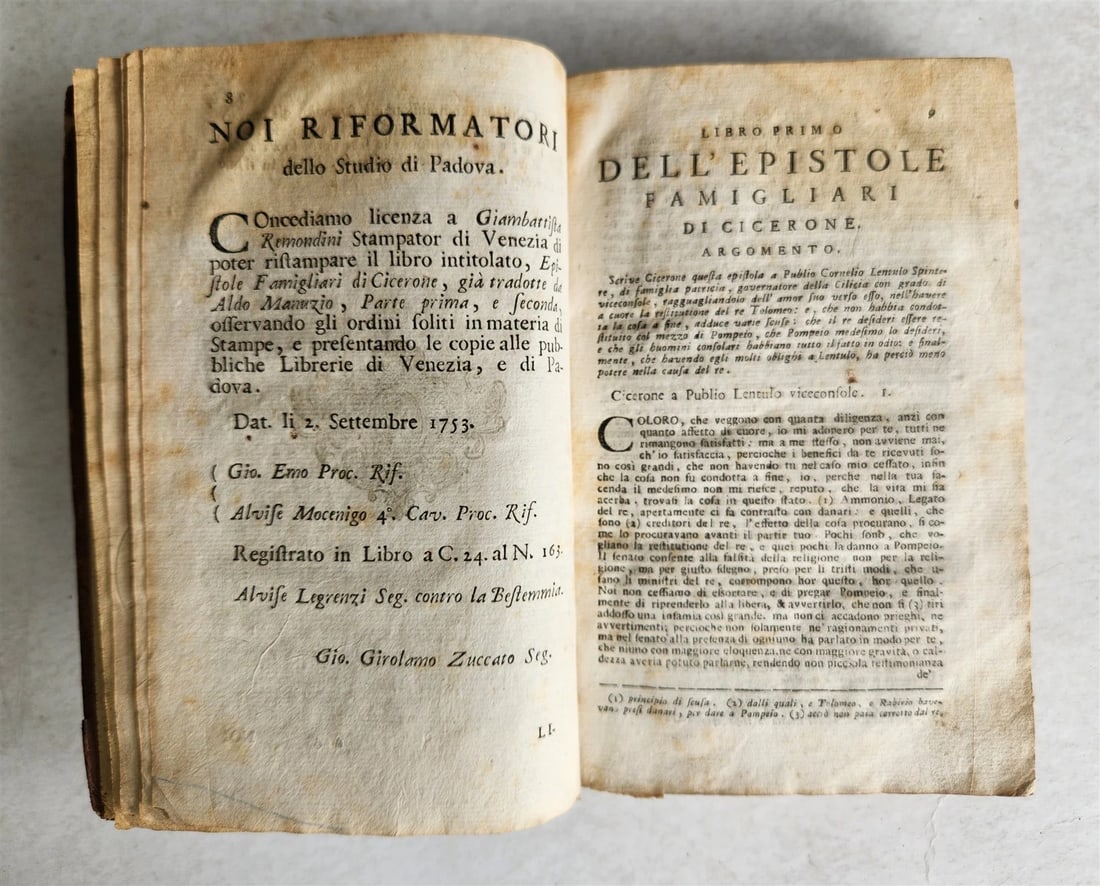 8
NOI RIFORMATORI
dello Studio di Padova.
COncediamo licenza a Giambattiſta
Remondini Stampator di Venezia di
poter riſtampare il libro intitolato, Epi-
ſtole Famigliari di Cicerone, già tradotte da
Aldo Manuzio, Parte prima, e ſeconda,
oſſervando gli ordini ſoliti in materia di
Stampe, e preſentando le copie alle pub-
bliche Librerie di Venezia, e di Pa-
dova.
Dat. li 2. Settembre 1753.
( Gio. Emo Proc. Rif.
(
( Alviſe Mocenigo 4°. Cav. Proc. Rif.
Regiſtrato in Libro a C. 24. al N. 163.
Alviſe Legrenzi Seg. contro la Beſtemmia.
Gio. Girolamo Zuccato Seg.
LI-
9
LIBRO PRIMO
DELL'EPISTOLE
FAMIGLIARI
DI CICERONE.
ARGOMENTO.
Scrive Cicerone queſta epiſtola a Publio Cornelio Lentulo Spinte-
re, di famiglia patricia, governatore della Cilicia con grado di
viceconſole, ragguagliandolo dell' amor ſuo verſo eſſo, nell'havere
a cuore la reſtitutione del re Tolomeo: e, che non habbia condot-
ta la coſa a fine, adduce varie ſcuſe: che il re deſideri eſſere re-
ſtituito col mezzo di Pompeio, che Pompeio medeſimo lo deſideri,
e che gli huomini conſolari habbiano tutto il fatto in odio: e final-
mente, che havendo egli molti oblighi a Lentulo, ha perciò meno
potere nella cauſa del re.
Cicerone a Publio Lentulo viceconſole. I.
COLORO, che veggono con quanta diligenza, anzi con
quanto affetto di cuore, io mi adopero per te, tutti ne
rimangono ſatisfatti: ma a me ſteſſo, non avviene mai,
ch'io ſatisfaccia, percioche i benefici da te ricevuti ſo-
no così grandi, che non havendo tu nel caſo mio ceſſato, inſin
che la coſa non fu condotta a fine, io, perche nella tua fa-
cenda il medeſimo non mi rieſce, reputo, che la vita mi ſia
acerba. trovaſi la coſa in queſto ſtato. (1) Ammonio, Legato
del re, apertamente ci fa contraſto con danari: e quelli, che
ſono (2) creditori del re, l'effetto della coſa procurano, ſi co-
me lo procuravano avanti il partir tuo. Pochi ſono, che vo-
gliano la reſtitutione del re, e quei pochi la danno a Pompeio.
Il ſenato conſente alla falſità della religione, non per la reli-
gione, ma per giuſto ſdegno, preſo per li triſti modi, che u-
ſano li miniſtri del re, corrompono hor queſto, hor quello.
Noi non ceſſiamo di eſortare, e di pregar Pompeio, e final-
mente di riprenderlo alla libera, & avvertirlo, che non ſi (3) tiri
addoſſo una infamia così grande. ma non ci accadono prieghi, ne
avvertimenti; percioche non ſolamente ne' ragionamenti privati,
ma nel ſenato alla preſenza di ogniuno ha parlato in modo per te,
che niuno con maggiore eloquenza, ne con maggiore gravità, o cal-
dezza averia potuto parlarne, rendendo non picciola teſtimonianza
de'
(1) principio di ſcuſa. (2) dalli quali, e Tolomeo, e Rabirio have-
vano preſi danari, per dare a Pompeio. (3) acciò non paia corrotto dal re,